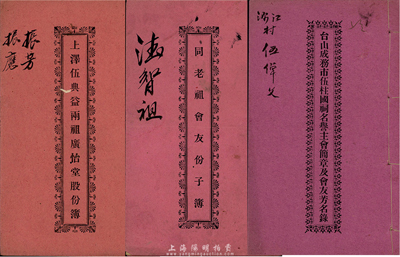 振芳
振麿
上澤伍典益兩祖廣怡堂股份簿
濤智祖
同老祖會友份子簿
江村
伍偉文
台山成務市伍柱國祠名譽主會簡章及會友芳名錄
上海陽明拍賣